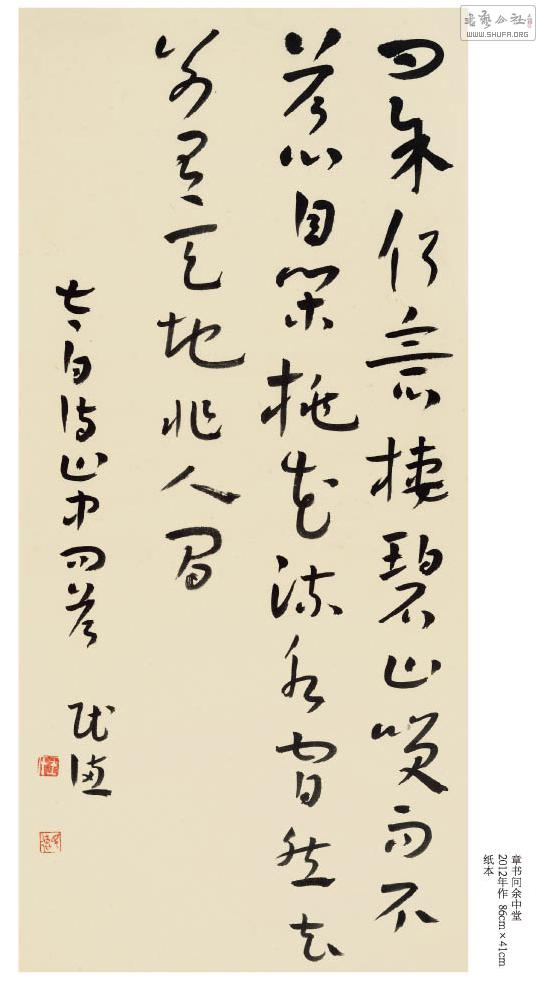 書藝公社
WWW.SHUFA.ORG
問余何意棲碧山笑而不
答心自閑桃花流水窅然去
別有天地非人間
太白詩山中問答
章书问余中堂
2012年作 86cm×41cm
纸本